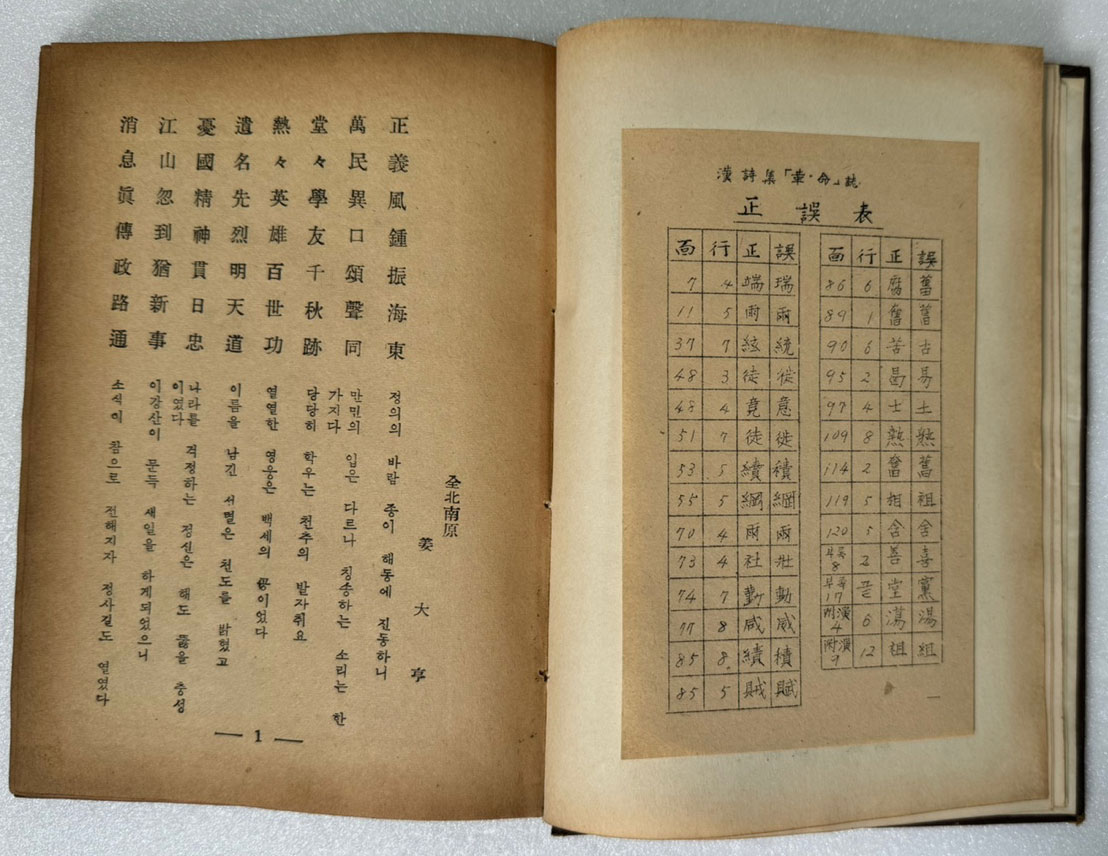 漢詩集「革·命」誌
正誤表
面 行 正 誤
7 4 端 瑞
11 5 雨 兩
37 7 絃 統
48 3 徒 従
48 4 竟 意
51 7 徒 徙
53 5 續 積
55 5 綱 網
70 4 雨 兩
73 4 社 壯
74 7 勤 動
77 8 咸 威
85 8 績 積
85 5 賊 賦
面 行 正 誤
86 6 舊
89 1 奮 舊
90 6 苦 古
95 2 曷 易
97 4 士 土
109 8 熱
114 2 奮 舊
119 5 相 祖
120 5 舍 舎
부록 8 2 善 喜
부록 17 끝 堂 黨
附演 4 6 蕩 湯
附演 9 12 祖 組
全北南原
姜大亨
正義風鍾振海東
정의의 바람 종이 해동에 진동하니
萬民異口頌聲同
만민의 입은 다르나 칭송하는 소리는 한
가지다
堂々學友千秋跡
당당히 학우는 천추의 발자취요
熱々英雄百世功
열열한 영웅은 백세의 공이었다
遺名先烈明天道
이름을 남긴 선렬은 천도를 밝혔고
憂國精神貫日忠
나라를 걱정하는 정신은 해도 뚫을 충성
이였다
江山忽到猶新事
이강산이 문득 새일을 하게되었으니
消息眞傳政路通
소식이 참으로 전해지자 정사길도 열였다
— 1 —